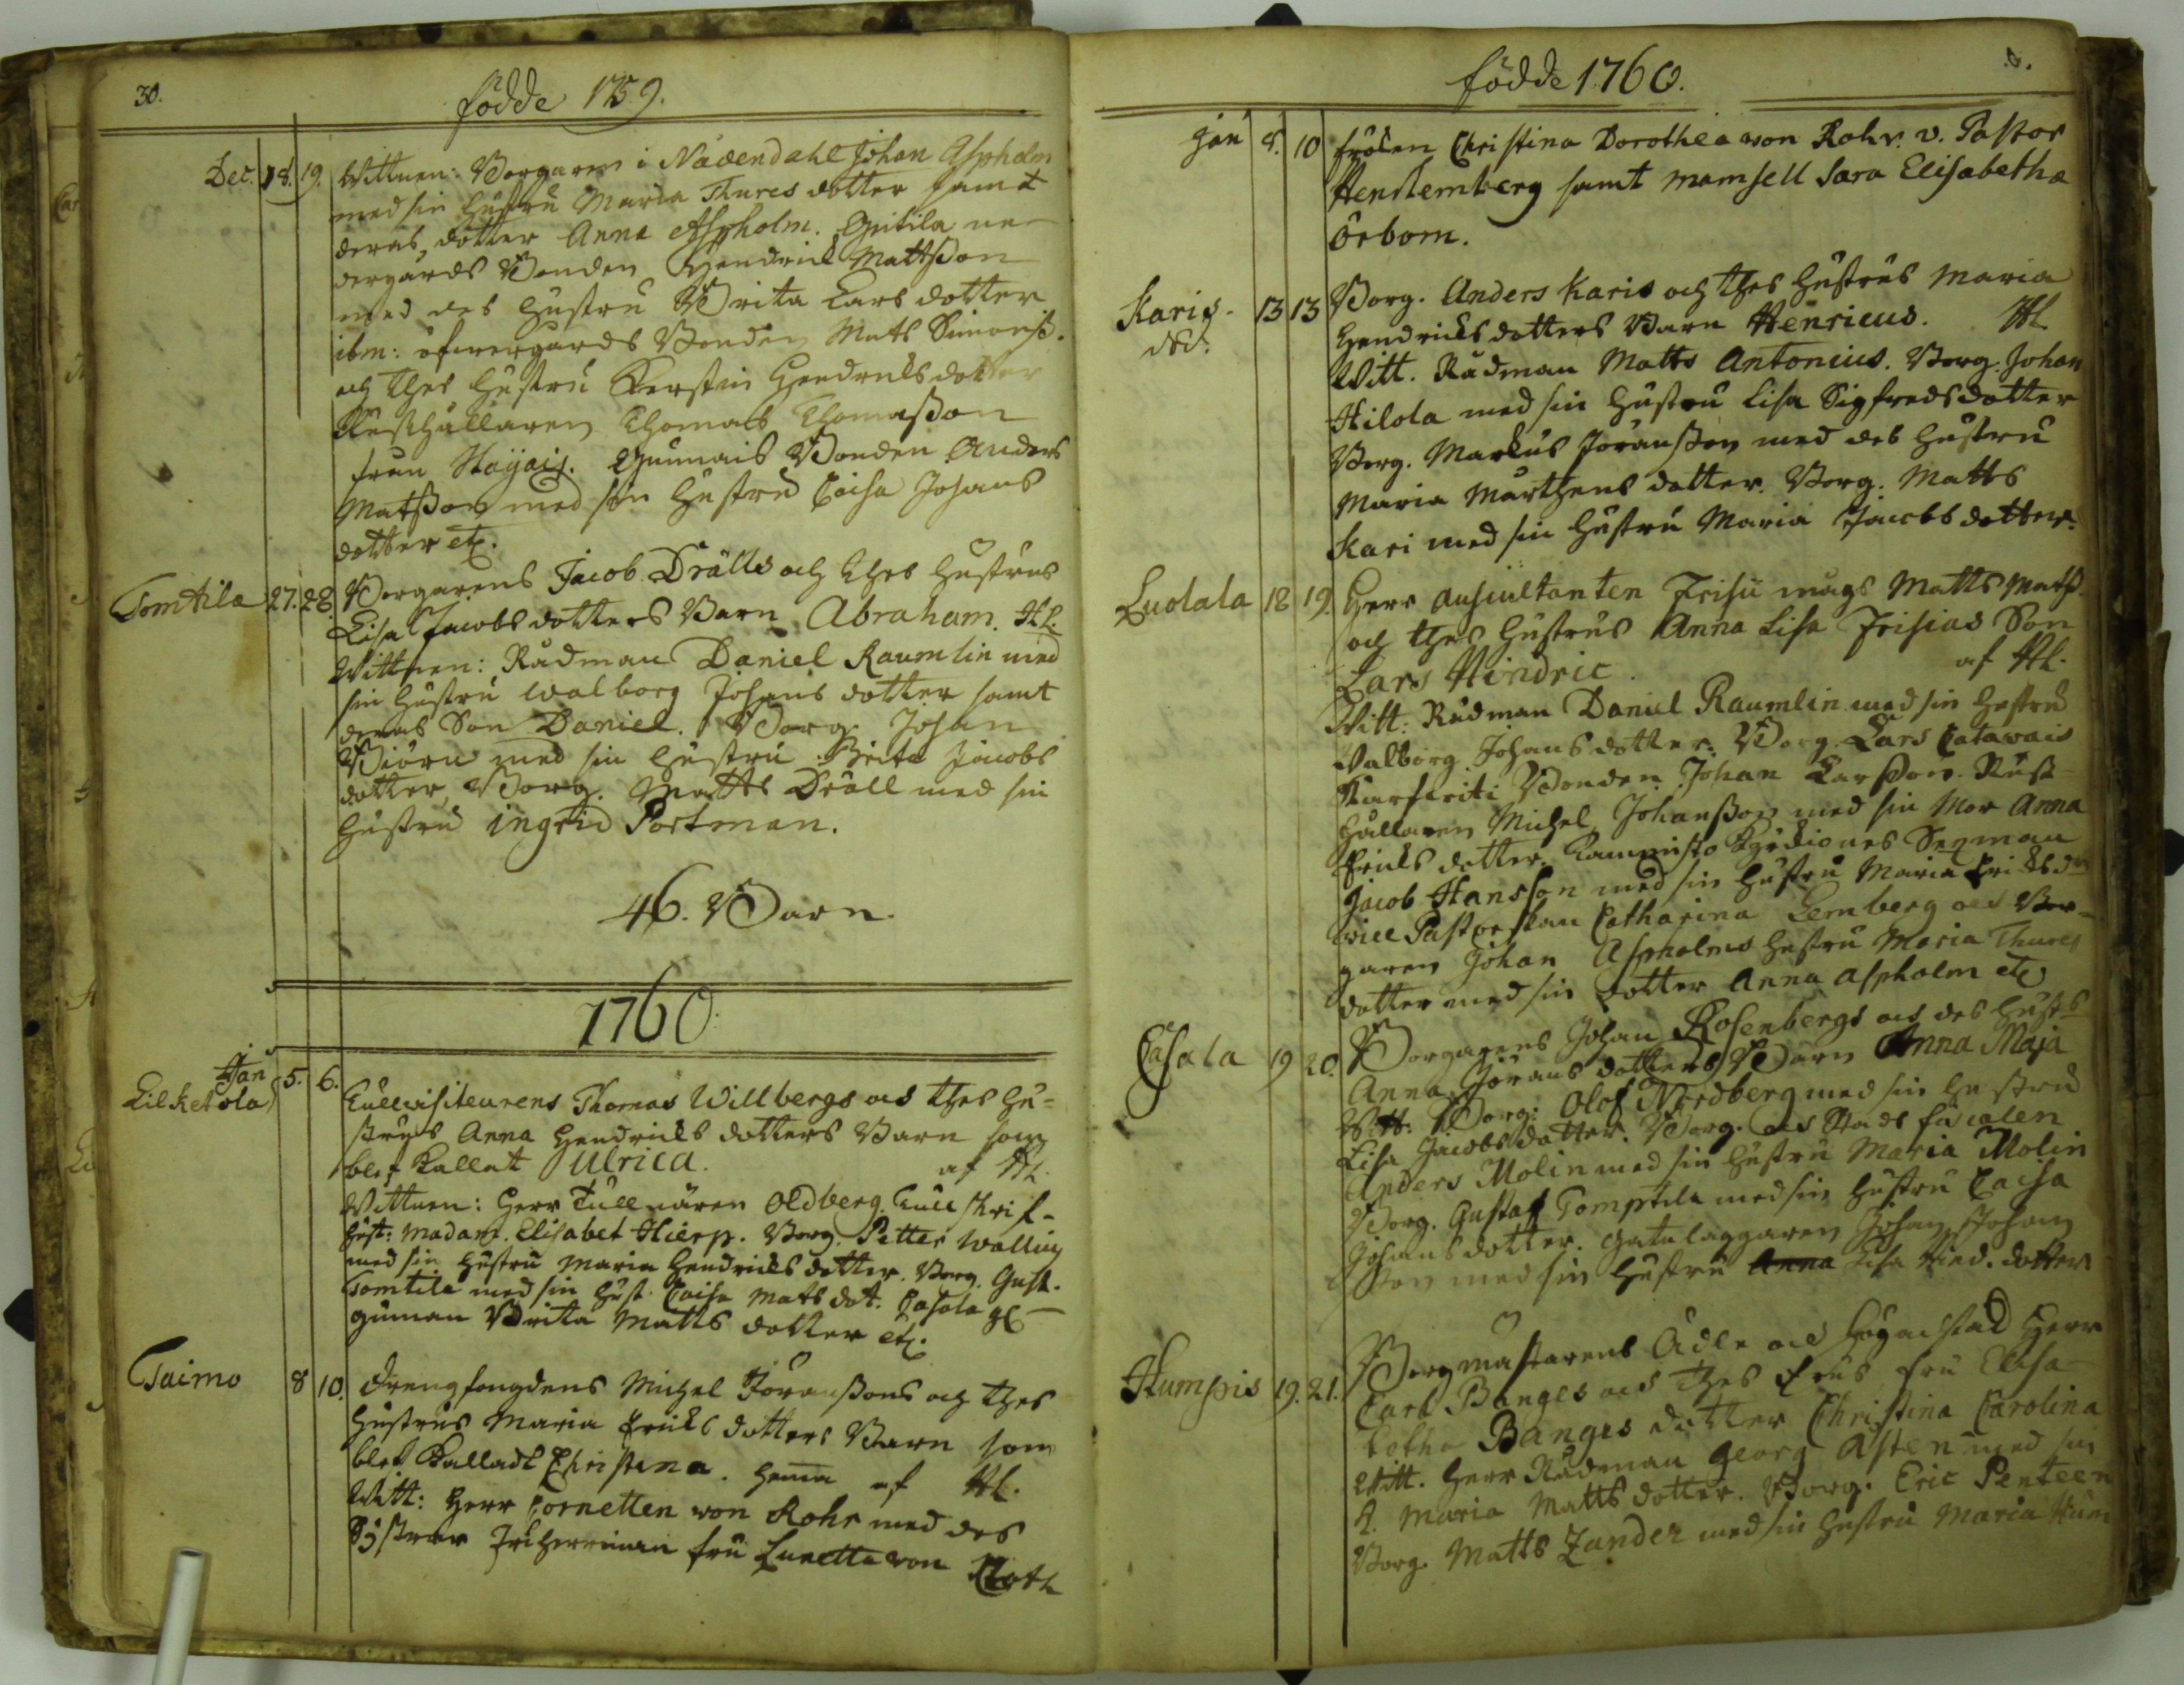 30.
födde 1759.
Dec. 18. 19. Wittnen: Borgaren i Nådendahl Johan Aspholm
med sin hustru Maria Thures dotter samt
deras dotter Anna Aspholm. ne-
dergårds Bonden Hendrick Mattsson
med des hustru Brita Lars dotter
ibm: öfwergårds Bonden Mats Simonss.
och thes hustru Kerstin Hendricks dotter
Rusthållaren Thomas Thomasson
från Bonden Anders
Matsson med sin hustru Caisa Johans
dotter etc.
Tomtila 27. 28. Borgarens Jacob Drälls och thes hustrus
Lisa Jacobs dotters Barn Abraham. Hl.
Wittnen: Rådman Daniel Raumlin med
sin hustru Walborg Johans dotter samt
deras Son Daniel. Borg. Johan
Biörn med sin hustru Brita Jacobs
dotter, Borg. Matts Dräll med sin
hustru ingrid Portman.
46. Barn.
1760
Jan 5. 6. Tullvisiteurens Thomas Willbergs och thes hu-
Lilketola strus Anna Hendricks dotters Barn som
blef kallat Ulrica. af Hl.
Wittnen: Herr Tullnären Oldberg. Tull skrif-
hust: Madam. Elisabet Hierp. Borg. Petter Walling
med sin hustru Maria Hendricks dotter. Borg. Gust.
Tomtila med sin hust. Caisa Mats dot. Casola
guman Brita Matts dotter etc.
Taimo 8 10. Drengfougdens Michel Jöranssons och thes
hustrus Maria Ericks dotters Barn som
blef kalladt Christena. hemma af Hl.
Witt: Herr Cornetten von Rohr med des
Systrar Friherrinnan fru Lunetta von Roth
födde 1760.
Jan 8. 10 fröken Christina Dorothea von Rohr. v. Pastor
samt Mamsell Sara Elisabetha
Örbom.
Karis 13 13 Borg. Anders Karis och thes hustrus Maria
Hendricksdotters Barn Henricus. Hl
Witt. Rådman Matts Antonius. Borg. Johan
Hilola med sin hustru Lisa Sigfredsdotter
Borg. Markus Jöransson med des hustru
Maria Mårthens dotter. Borg. Matts
Kari med sin hustru Maria Jacobs dotter.
Luolala 18 19. Herr Auscultanten Frisii mågs Matts Matss.
och thes hustrus Anna Lisa Frisias Son
Lars Hindric. af Hl.
Witt: Rådman Daniel Raumlin med sin hustru
Valborg Johans dotter. Borg. Lars Catavais
Bonden Johan Larsson. Rust-
hållaren Michel Johansson med sin Mor Anna
Ericks dotter. Sexman
Jacob Hansson med sin hustru Maria Ericks dr
vice Pastorskan Catharina Lemberg och Bor-
garen Johan Aspholms hustru Maria Thures
dotter med sin dotter Anna Aspholm etc
Casala 19 20. Borgarens Johan Rosenbergs och des hustrus
Anna Jörans dotters Barn Anna Maja
Witt. Borg. Olof Nordberg med sin hustru
Lisa Jacobsdotter. Borg. och Stads fiscalen
Anders Molin med sin hustru Maria Molin
Borg. Gustaf Tomptila med sin hustru Caisa
Johansdotter. gatuläggaren Johan Johan
son med sin hustru Anna Lisa Hind. dotter
Humpis 19. 21. Borgmästarens Ädle och Högachtad Herr
Carl Banges och thes frus fru Elisa-
betha Banges dotter Christina Carolina
Witt. Herr Rådman Georg Asten med sin
h. Maria Matts dotter. Borg. Eric Penteen
Borg. Matts Zander med sin hustru Maria Hum